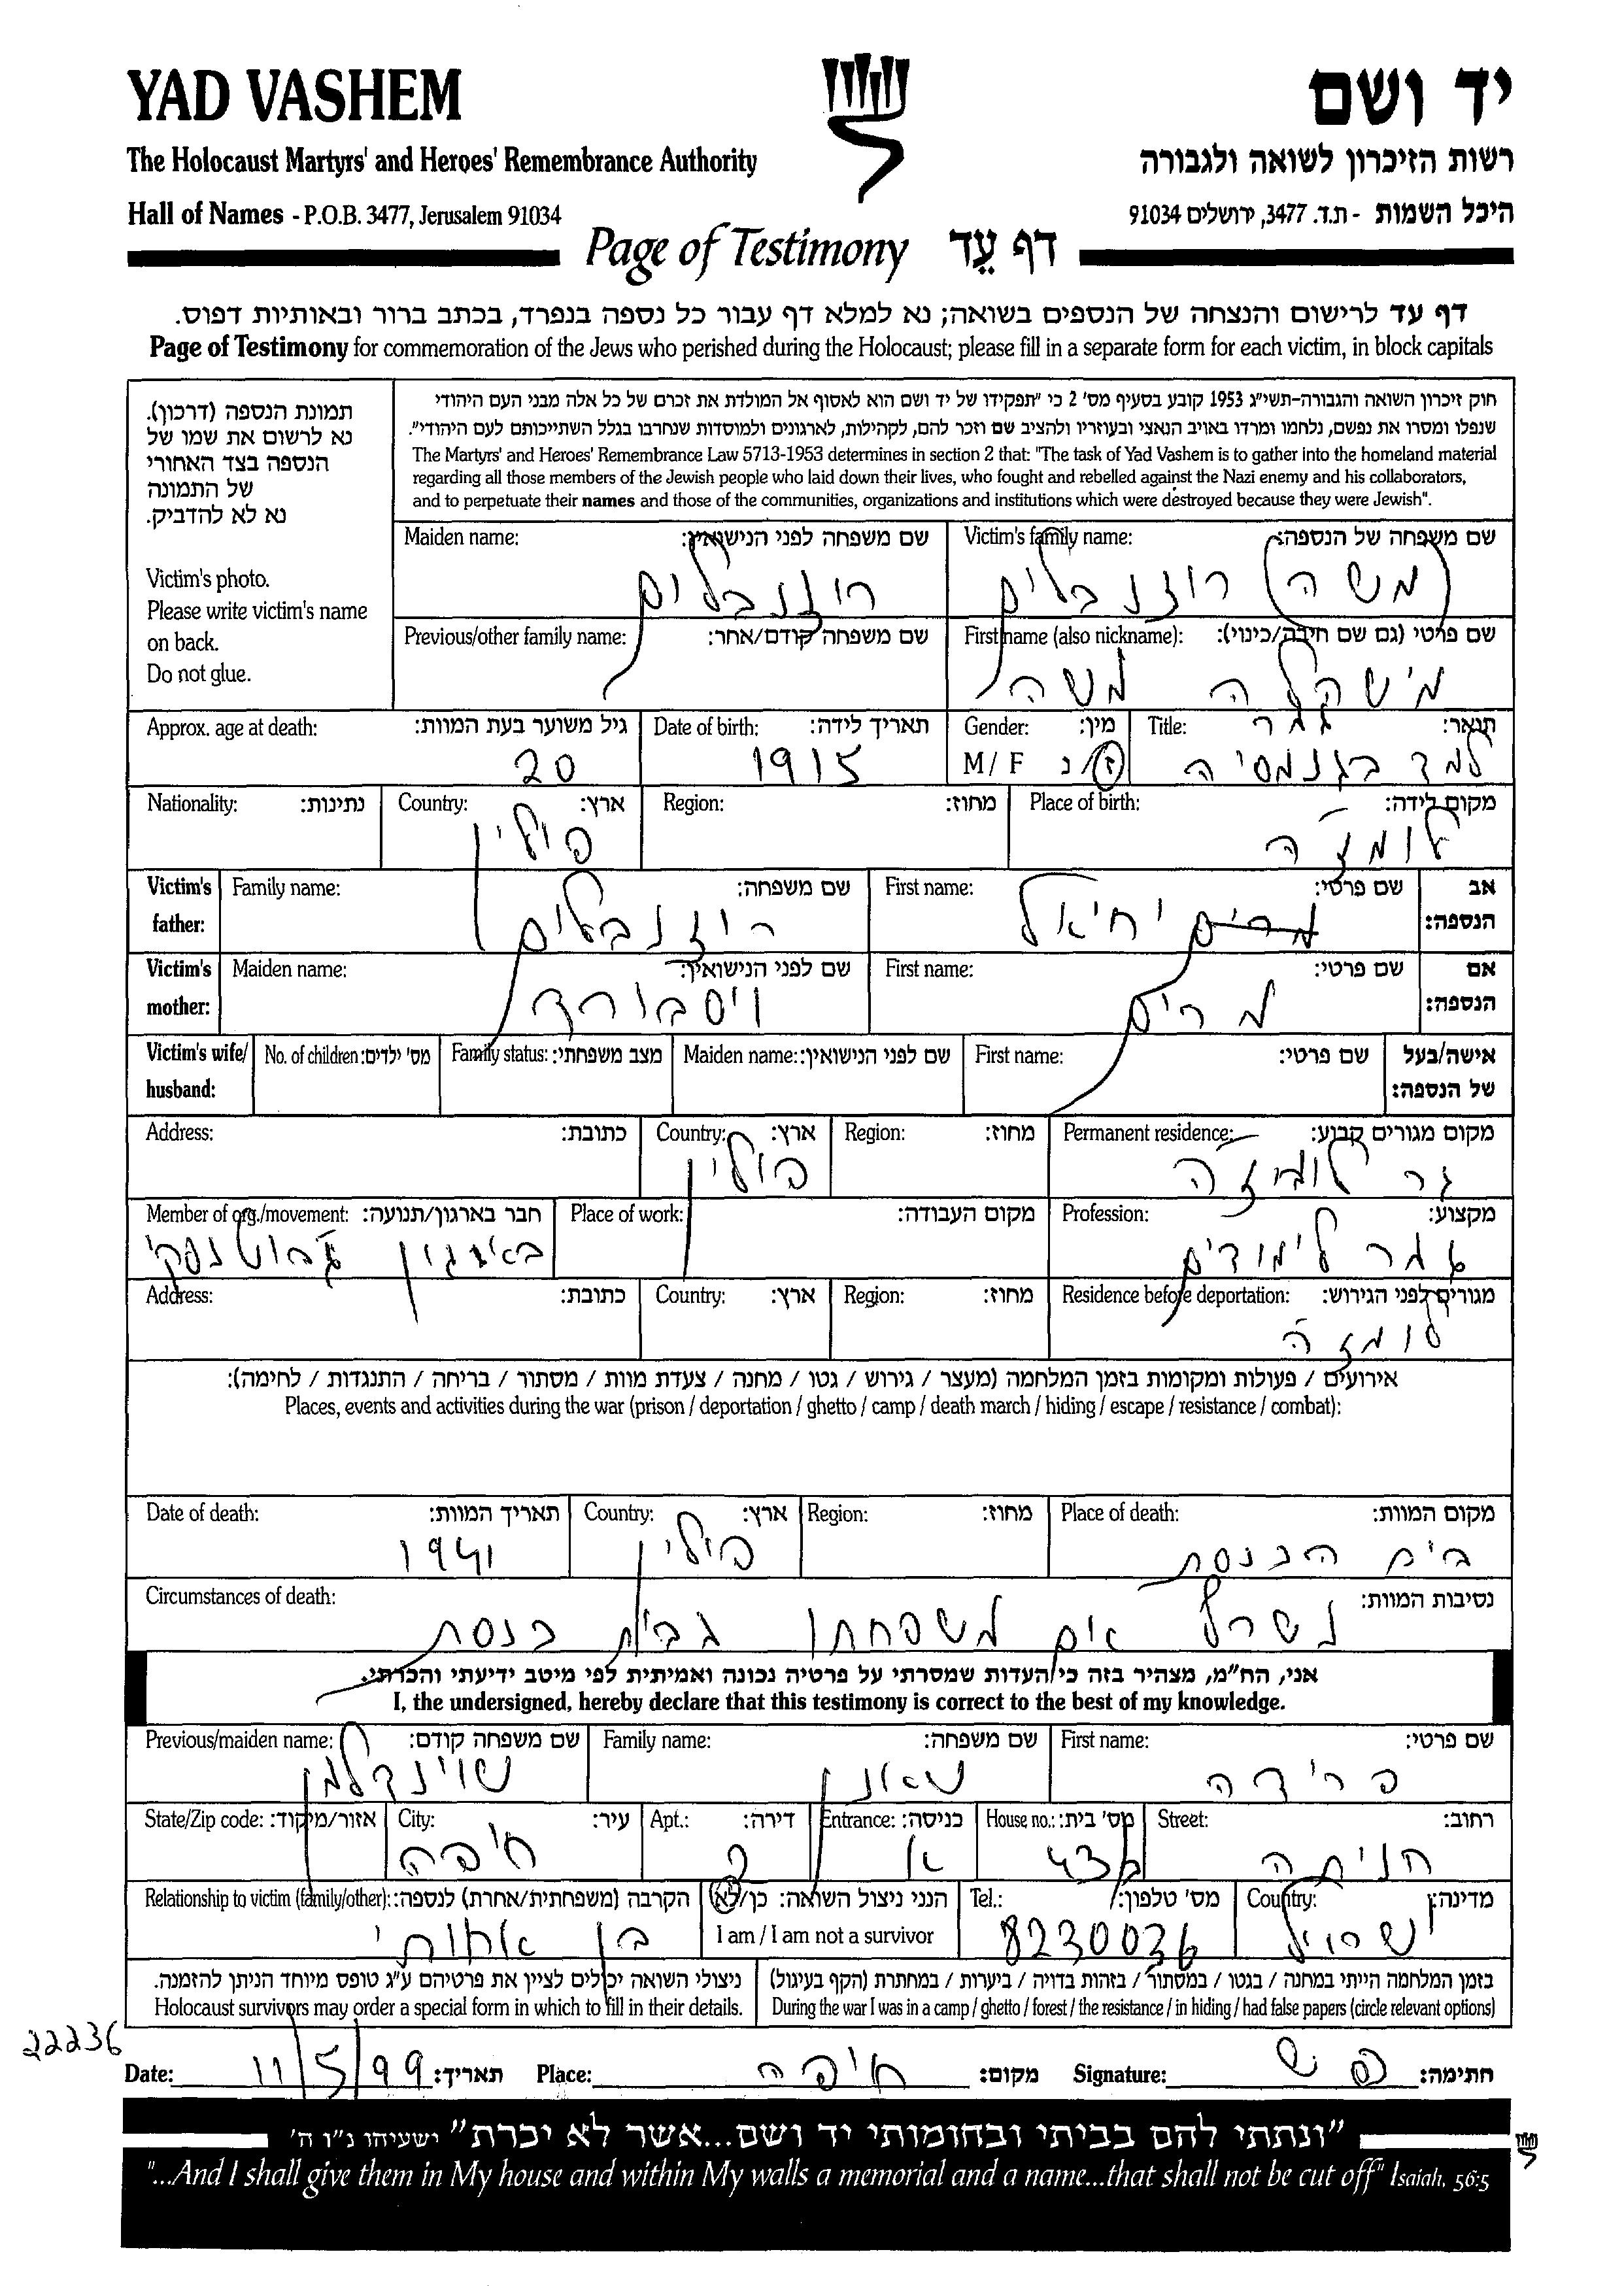 YAD VASHEM
יד ושם
The Holocaust Martyrs' and Heroes' Remembrance Authority
רשות הזיכרון לשואה ולגבורה
Hall of Names - P.O.B. 3477, Jerusalem 91034
היכל השמות - ת.ד. 3477, ירושלים 91034
Page of Testimony דף עֵד
דף עד לרישום והנצחה של הנספים בשואה; נא למלא דף עבור כל נספה בנפרד, בכתב ברור ובאותיות דפוס.
Page of Testimony for commemoration of the Jews who perished during the Holocaust; please fill in a separate form for each victim, in block capitals
תמונת הנספה (דרכון).
נא לרשום את שמו של
הנספה בצד האחורי
של התמונה
נא לא להדביק.
Victim's photo.
Please write victim's name
on back.
Do not glue.
חוק זיכרון השואה והגבורה-תשי"ג 1953 קובע בסעיף מס' 2 כי "תפקידו של יד ושם הוא לאסוף אל המולדת את זכרם של כל אלה מבני העם היהודי
שנפלו ומסרו את נפשם, נלחמו ומרדו באויב הנאצי ובעוזריו ולהציב שם וזכר להם, לקהילות, לארגונים ולמוסדות שנחרבו בגלל השתייכותם לעם היהודי".
The Martyrs' and Heroes' Remembrance Law 5713-1953 determines in section 2 that: "The task of Yad Vashem is to gather into the homeland material
regarding all those members of the Jewish people who laid down their lives, who fought and rebelled against the Nazi enemy and his collaborators,
and to perpetuate their names and those of the communities, organizations and institutions which were destroyed because they were Jewish".
Victim's family name: שם משפחה של הנספה:
(משה) רוזנבלום
Maiden name: שם משפחה לפני הנישואין:
רוזנבלום
First name (also nickname): שם פרטי (גם שם חיבה/כינוי):
מישקלה משה
Previous/other family name: שם משפחה קודם/אחר:
Title: תואר:
למד בגנמסיה
Gender: מין:
M / F ז/נ
Date of birth: תאריך לידה:
1915
Approx. age at death: גיל משוער בעת המוות:
20
Place of birth: מקום לידה:
לומז'ה
Region: מחוז:
Country: ארץ:
פולין
Nationality: נתינות:
Victim's father: אב הנספה:
First name: שם פרטי:
מרים יחיאל
Family name: שם משפחה:
רוזנבלום
Victim's mother: אם הנספה:
First name: שם פרטי:
מרים
Maiden name: שם לפני הנישואין:
ויסבורד
Victim's wife/ husband: אישה/בעל של הנספה:
First name: שם פרטי:
Maiden name: שם לפני הנישואין:
Family status: מצב משפחתי:
No. of children: מס' ילדים:
Permanent residence: מקום מגורים קבוע:
גר לומז'ה
Region: מחוז:
Country: ארץ:
פולין
Address: כתובת:
Profession: מקצוע:
גמר לימודים
Place of work: מקום העבודה:
Member of org./movement: חבר בארגון/תנועה:
באירגון ז'בוטנסקי
Residence before deportation: מגורים לפני הגירוש:
לומז'ה
Region: מחוז:
Country: ארץ:
Address: כתובת:
אירועים / פעולות ומקומות בזמן המלחמה (מעצר / גירוש / גטו / מחנה / צעדת מוות / מסתור / בריחה / התנגדות / לחימה):
Places, events and activities during the war (prison / deportation / ghetto / camp / death march / hiding / escape / resistance / combat):
Place of death: מקום המוות:
בית הכנסת
Region: מחוז:
Country: ארץ:
פולין
Date of death: תאריך המוות:
1941
Circumstances of death: נסיבות המוות:
נשרף אים משפחתו בבית כנסת
אני, הח"מ, מצהיר בזה כי העדות שמסרתי על פרטיה נכונה ואמיתית לפי מיטב ידיעתי והכרתי.
I, the undersigned, hereby declare that this testimony is correct to the best of my knowledge.
First name: שם פרטי:
פרידה
Family name: שם משפחה:
Previous/maiden name: שם משפחה קודם:
שוינדלמן
Street: רחוב:
חניתה
House no.: מס' בית:
Entrance: כניסה:
א
Apt.: דירה:
2
City: עיר:
חיפה
State/Zip code: אזור/מיקוד:
Country: מדינה:
ישראל
Tel.: מס' טלפון:
8230036
הנני ניצול השואה: כן/לא
I am / I am not a survivor
Relationship to victim (family/other): הקרבה (משפחתית/אחרת) לנספה:
בן אחותי
בזמן המלחמה הייתי במחנה / בגטו / במסתור / בזהות בדויה / ביערות / במחתרת (הקף בעיגול)
During the war I was in a camp / ghetto / forest / the resistance / in hiding / had false papers (circle relevant options)
ניצולי השואה יכולים לציין את פרטיהם ע"ג טופס מיוחד הניתן להזמנה.
Holocaust survivors may order a special form in which to fill in their details.
22236
Signature: חתימה:
Place: חיפה מקום:
Date: 11/5/99 תאריך:
"ונתתי להם בביתי ובחומותי יד ושם...אשר לא יכרת" ישעיהו נ"ו ה'
"...And I shall give them in My house and within My walls a memorial and a name...that shall not be cut off" Isaiah, 56:5